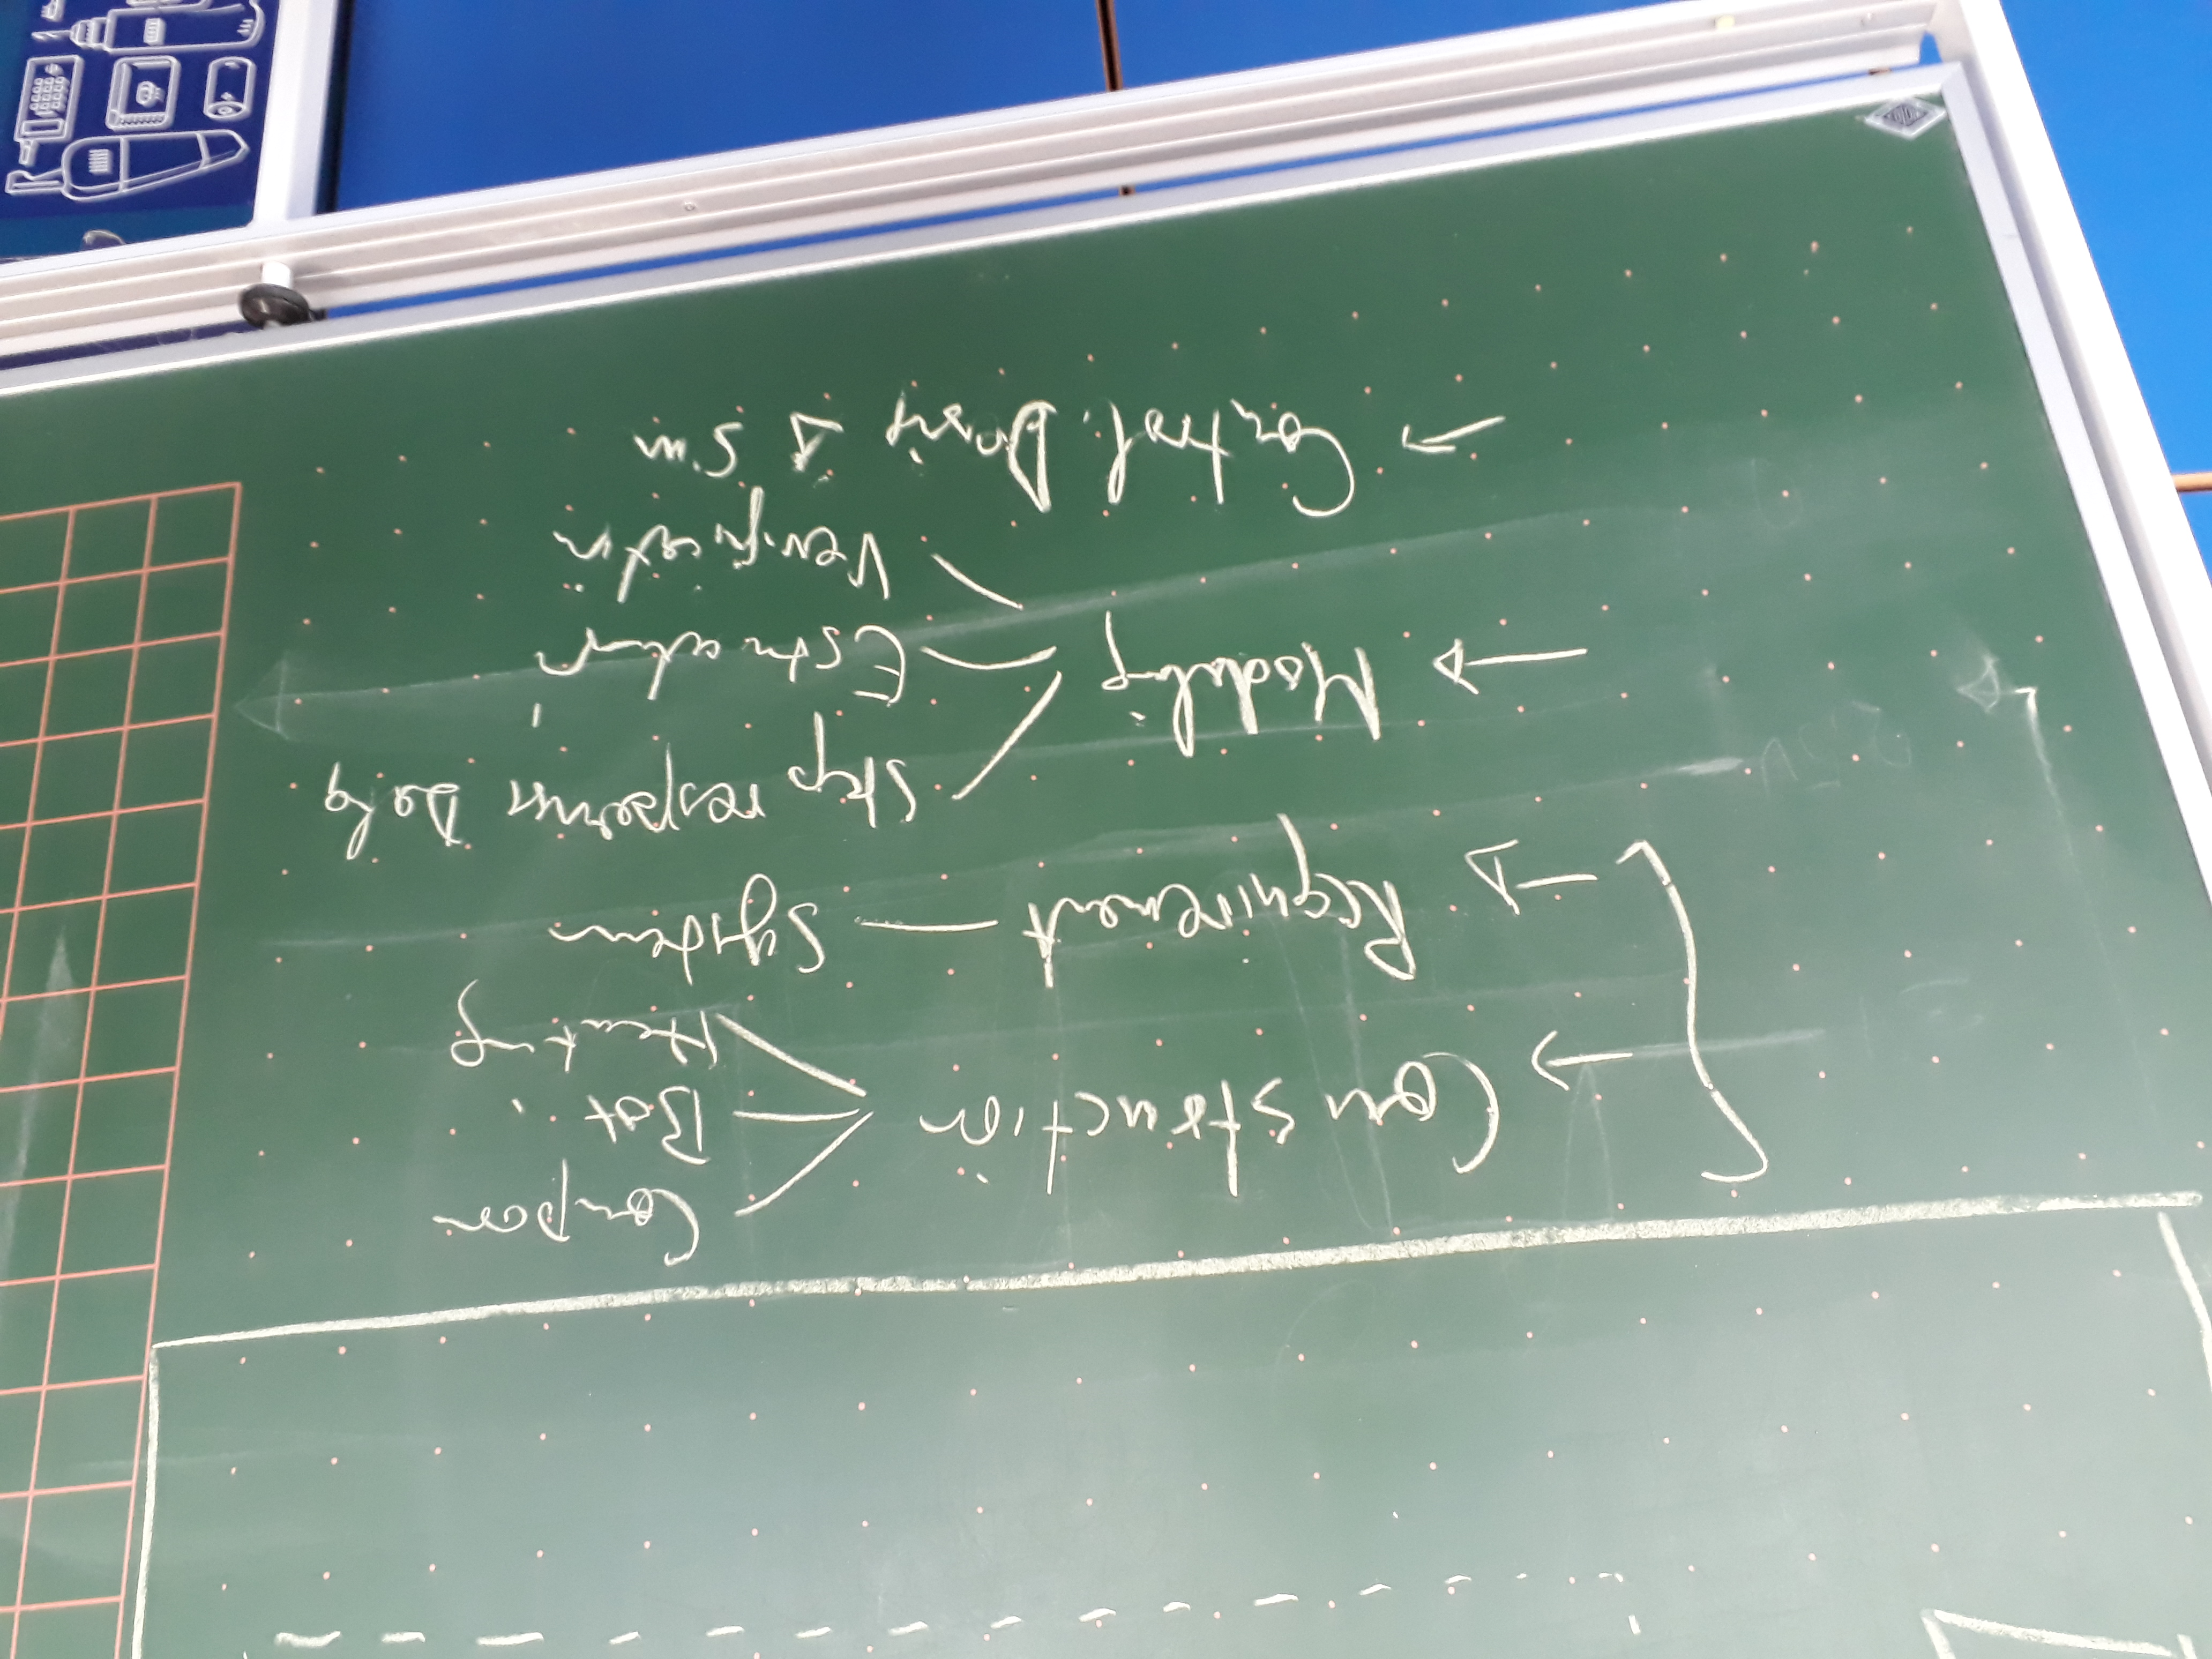 Construction
Compon
Bot
Heating
Requirement — System
Modeling
Step response Data
Estimation
Verification
Control. Desig & Sim